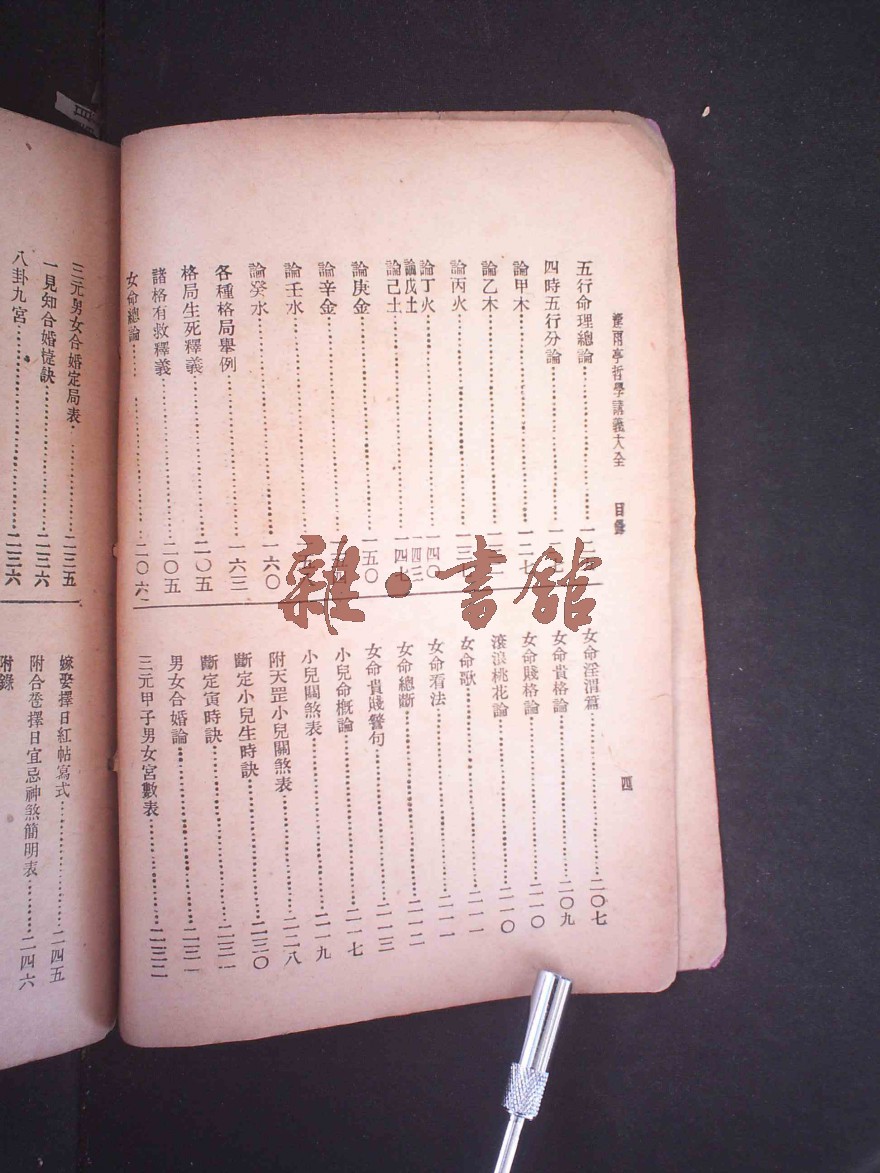 雨亭哲學講義大全 目錄
四
五行命理總論
四時五行分論
論甲木 一一七
論乙木
論丙火
論丁火 一四〇
論戊土 一四三
論己土 一四七
論庚金 一五〇
論辛金
論壬水
論癸水 一六〇
各種格局舉例 一六三
格局生死釋義 二〇五
諸格有救釋義 二〇五
女命總論 二〇六
女命淫渭篇 二〇七
女命貴格論 二〇九
女命賤格論 二一〇
滾浪桃花論 二一〇
女命歌 二一一
女命看法 二一一
女命總斷 二一二
女命貴賤警句 二一三
小兒命概論 二一七
小兒關煞表 二一九
附天罡小兒關煞表 二二八
斷定小兒生時訣 二三〇
斷定寅時訣 二三一
男女合婚論 二三一
三元甲子男女宮數表 二三二
三元男女合婚定局表 二三五
一見知合婚捷訣 二三六
八卦九宮 二三六
嫁娶擇日紅帖寫式 二四五
附合巹擇日宜忌神煞簡明表 二四六
附錄
雜·書館